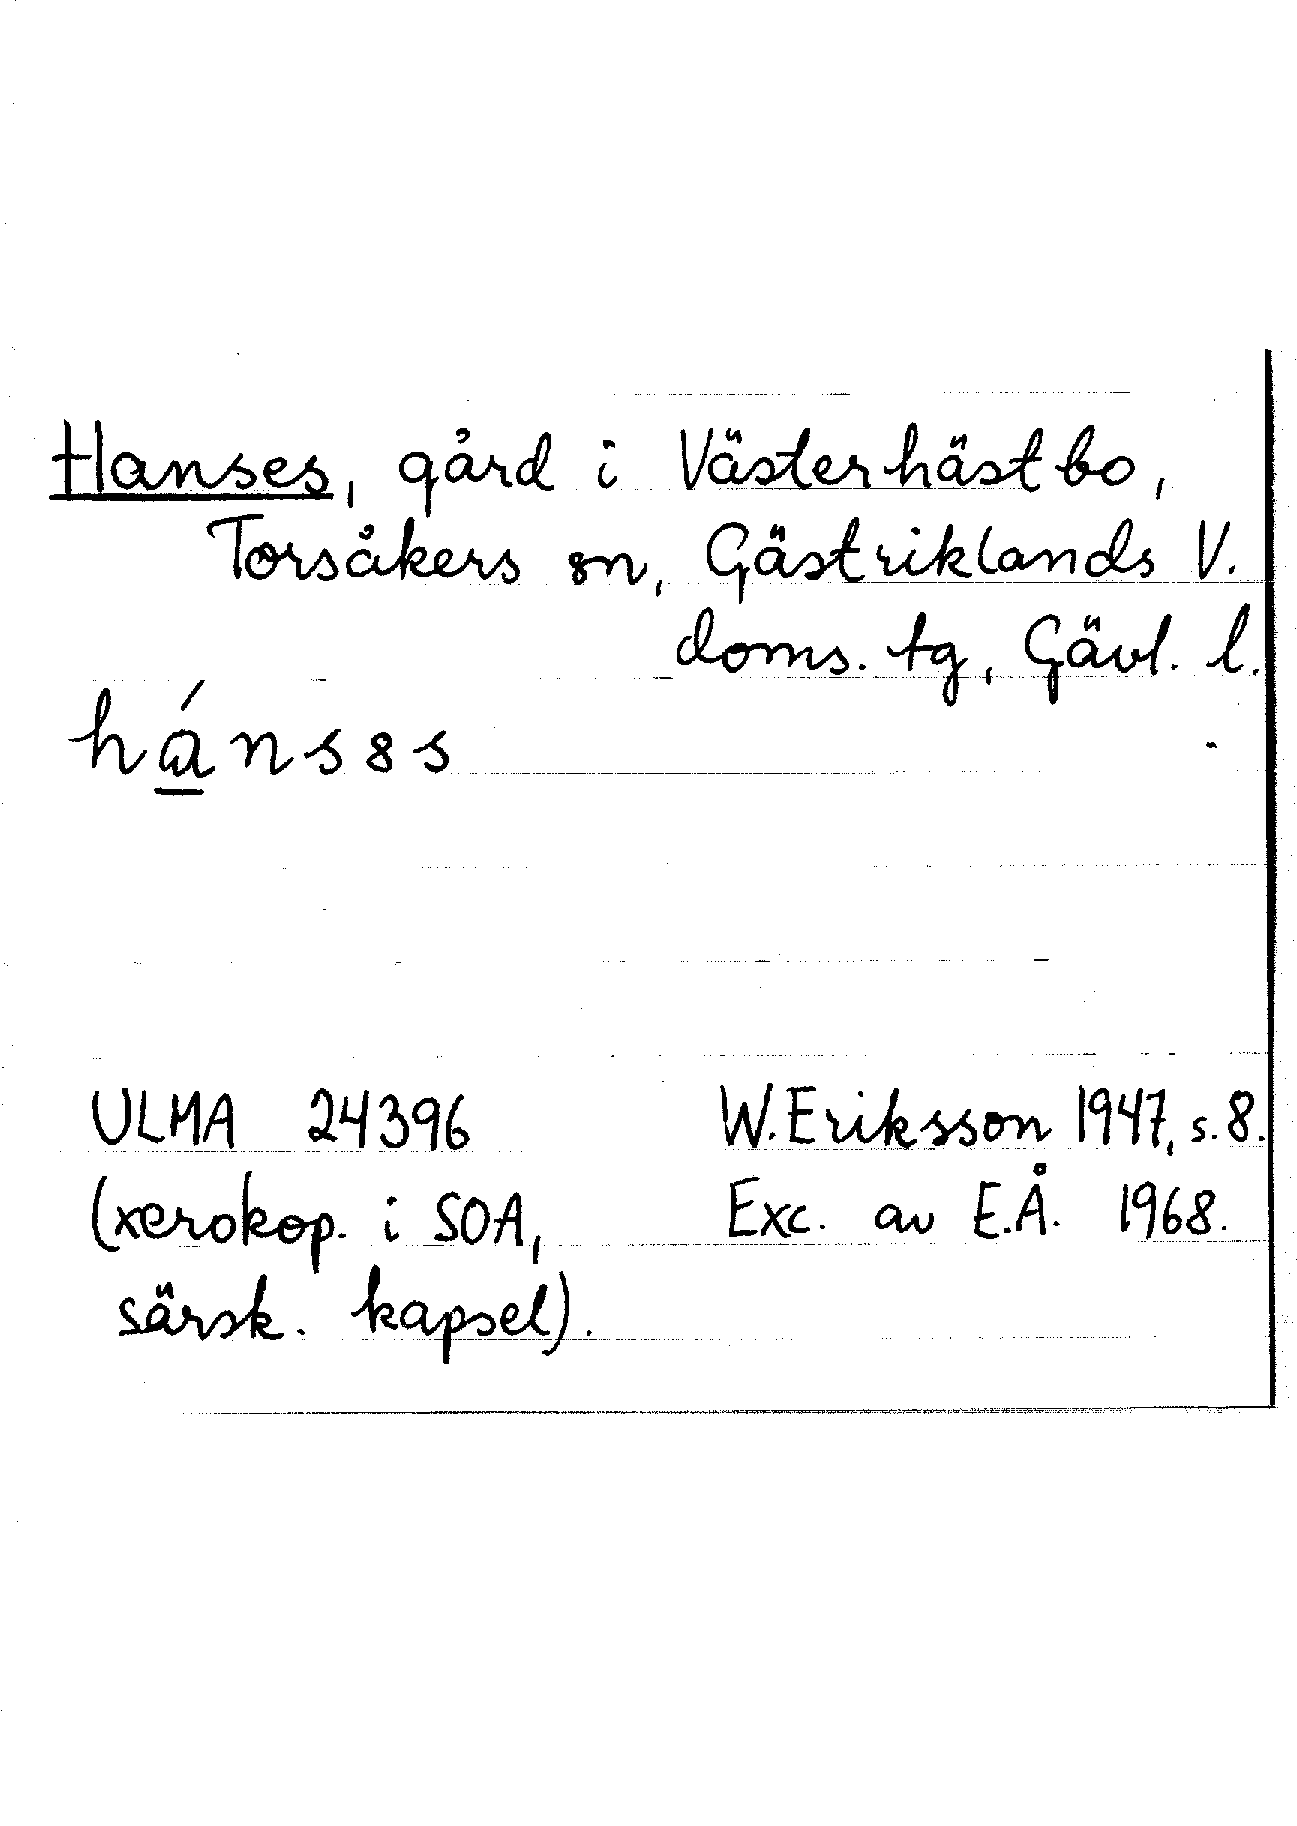 Hanses, gård i Västerhästbo,
Torsåkers sn, Gästriklands V.
doms. tg, Gävl. l.
há̱ns8s
ULMA 24396
(xerokop. i SOA,
särsk. kapsel).
W. Eriksson 1947, s. 8.
Exc. av E.Å. 1968.